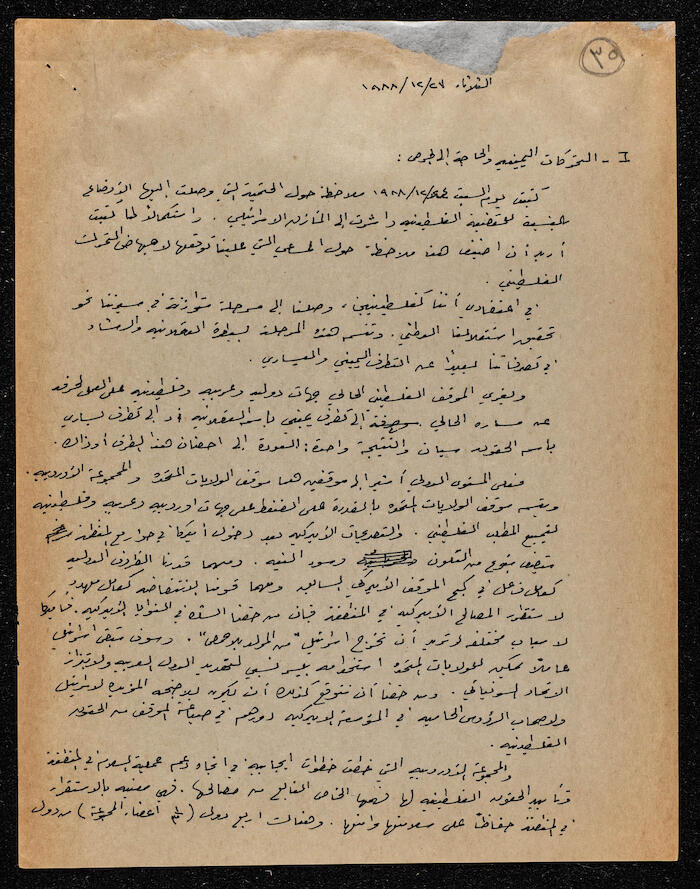 ٣٥
الثلاثاء ٢٧/١٢/١٩٨٨
I - التحركات اليمينية والحاجة إلى الحرص :
كتبت يوم السبت ١٢/٢٤/١٩٨٨ ملاحظة حول الحتمية التي وصلت اليها الأوضاع
بالنسبة للقضية الفلسطينية واشرت إلى المأزق الاسرائيلي . واستكمالاً لما كتبت
أريد أن اضيف هنا ملاحظة حول المساعي التي علينا توقعها لاجهاض التحرك
الفلسطيني .
في اعتقادي أننا كفلسطينيين ، وصلنا إلى مرحلة متوازنة في مسيرتنا نحو
تحقيق استقلالنا الوطني . وتتسم هذه المرحلة بسيطرة العقلانية والرشاد
في تصرفاتنا بعيداً عن التطرف اليميني واليساري .
ويغري الموقف الفلسطيني الحالي جهات دولية وعربية وفلسطينية على العمل لحرفه
عن مساره الحالي إلى تطرف يميني باسم العقلانية أو إلى تطرف يساري
باسم الحقوق سيان والنتيجة واحدة : العودة إلى احضان هذا الطرف أو ذاك .
فعلى المستوى الدولي أشير إلى موقفين هما موقف الولايات المتحدة والمجموعة الأوروبية .
ويتسم موقف الولايات المتحدة بالقدرة على الضغط على جهات اوروبية وعربية وفلسطينية
لتمييع المطلب الفلسطيني . والتصريحات الأميركية بعيد دخول أميركا في حوار مع المنظمة
تتصف بنوع من التلون وسوء النية . ومهما قدرنا الظروف الدولية
كعامل فاعل في كبح الموقف الأميركي السالب ومهما قوّمنا الانتفاضة كعامل مهدد
لاستقرار المصالح الأميركية في المنطقة فإن من حقنا الشك في النوايا الأميركية . فأميركا
لاسباب مختلفة لا تريد أن تخرج اسرائيل "من المولد بلا حمص" . وسوف تبقى اسرائيل
عاملاً يمكن للولايات المتحدة استخدامه بيسر نسبي لتهديد الدول العربية ولابتزاز
الاتحاد السوفياتي . ومن حقنا أن نتوقع كذلك أن يكون للاجنحة المؤيدة لاسرائيل
ولاصحاب الرؤوس الحامية في المؤسسة الأميركية دورهم في صياغة الموقف من الحقوق
الفلسطينية .
والمجموعة الأوروبية التي خطت خطوات ايجابية في اتجاه دعم عملية السلام في المنطقة
وتأييد الحقوق الفلسطينية لها فهمها الخاص النابع من مصالحها . فهي معنية بالاستقرار
في المنطقة حفاظاً على سلامتها وامنها . وهنالك اربع دول ( ١/٣ أعضاء المجموعة ) من دول